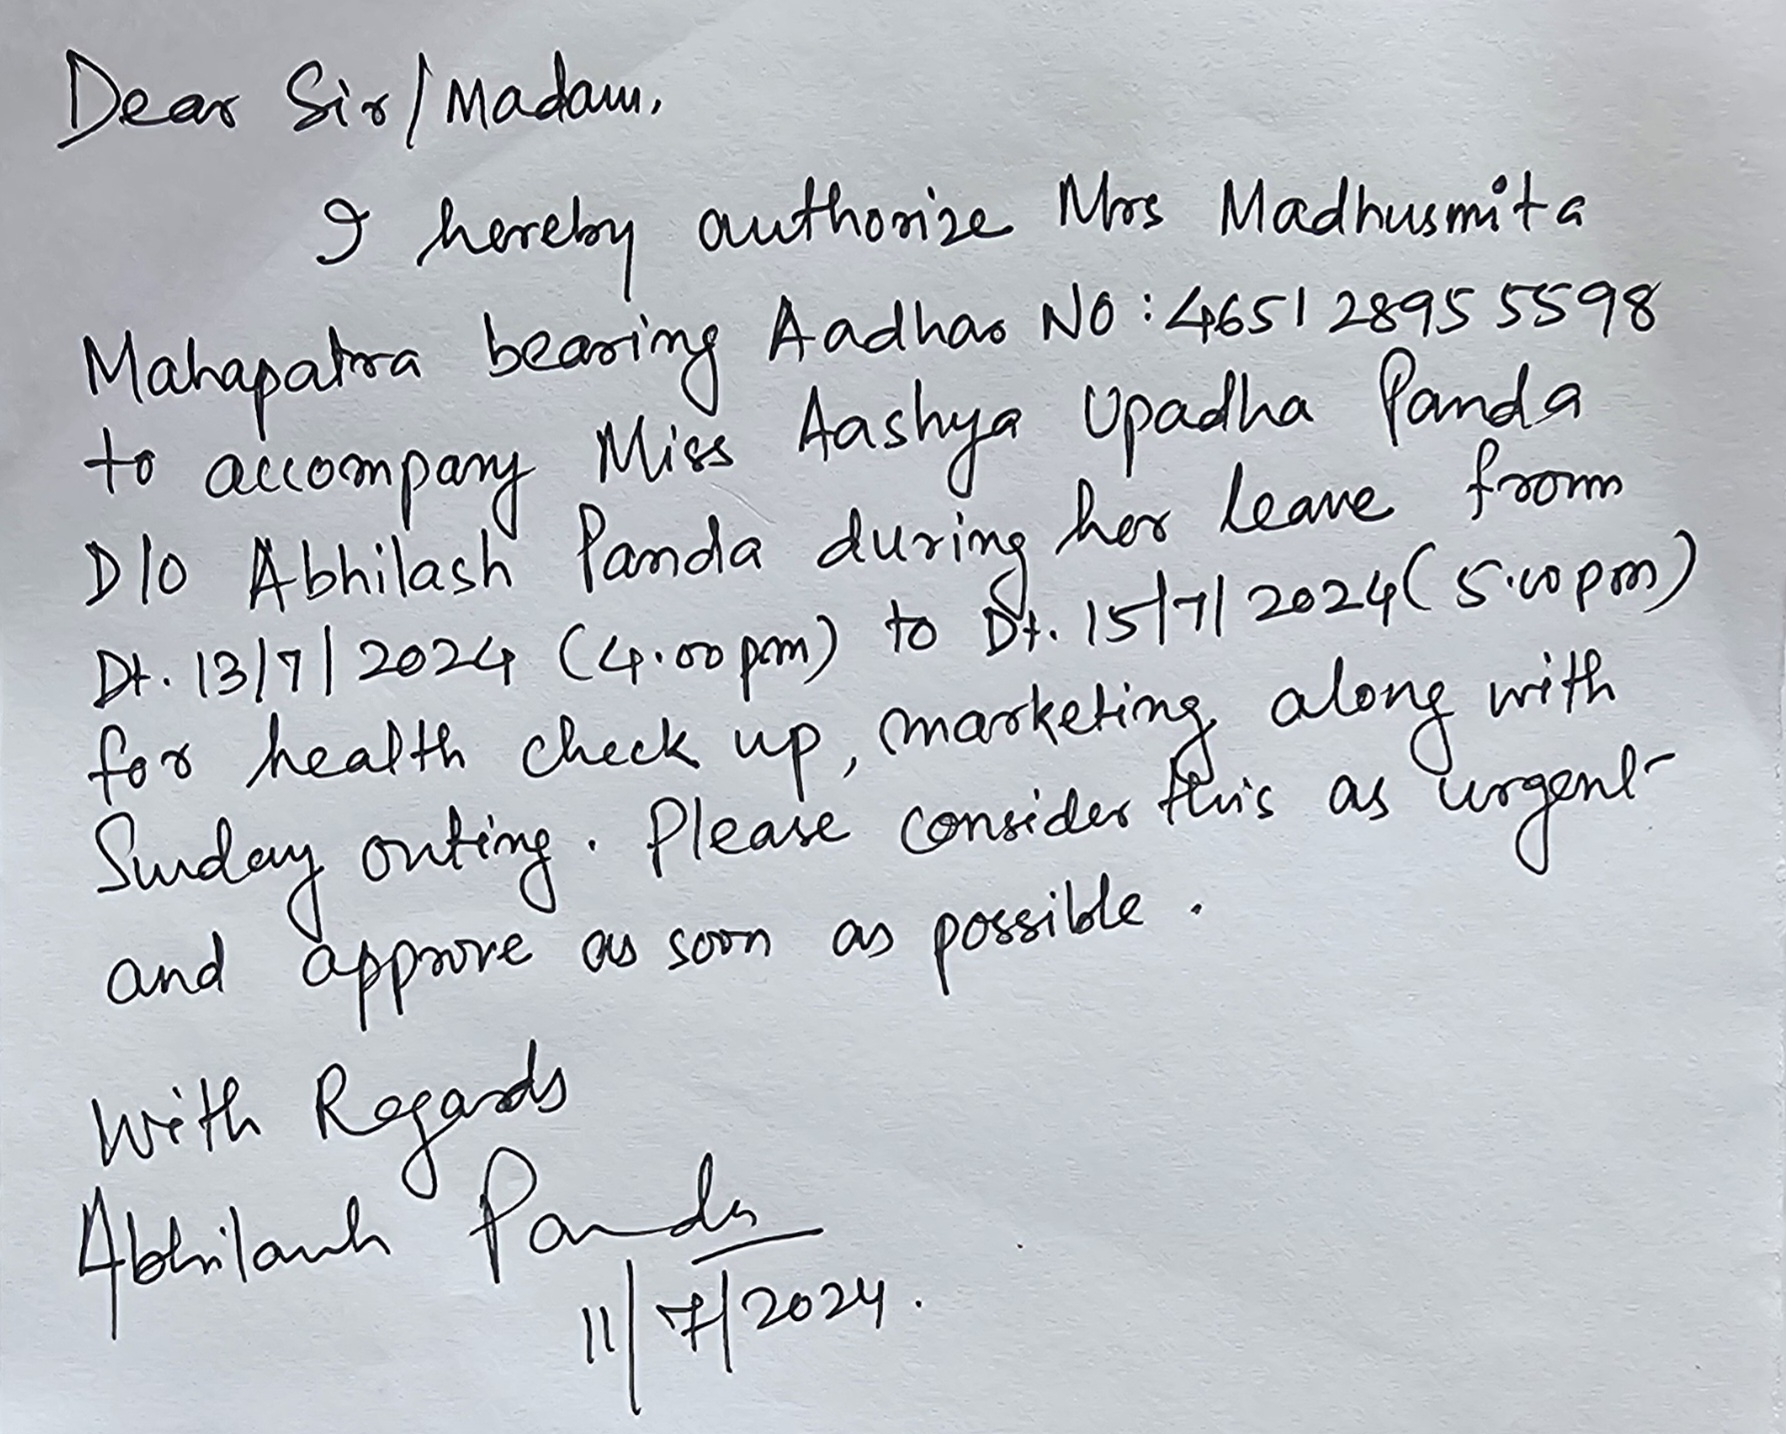 Dear Sir/Madam,
I hereby authorize Mrs Madhusmita
Mahapatra bearing Aadhar NO: 4651 2895 5598
to accompany Miss Aashya Upadha Panda
D/O Abhilash Panda during her leave from
Dt. 13/7/2024 (4.00pm) to Dt. 15/7/2024 (5.00pm)
for health check up, marketing along with
Sunday outing. Please consider this as urgent
and approve as soon as possible.
With Regards
Abhilash Panda
11/7/2024.